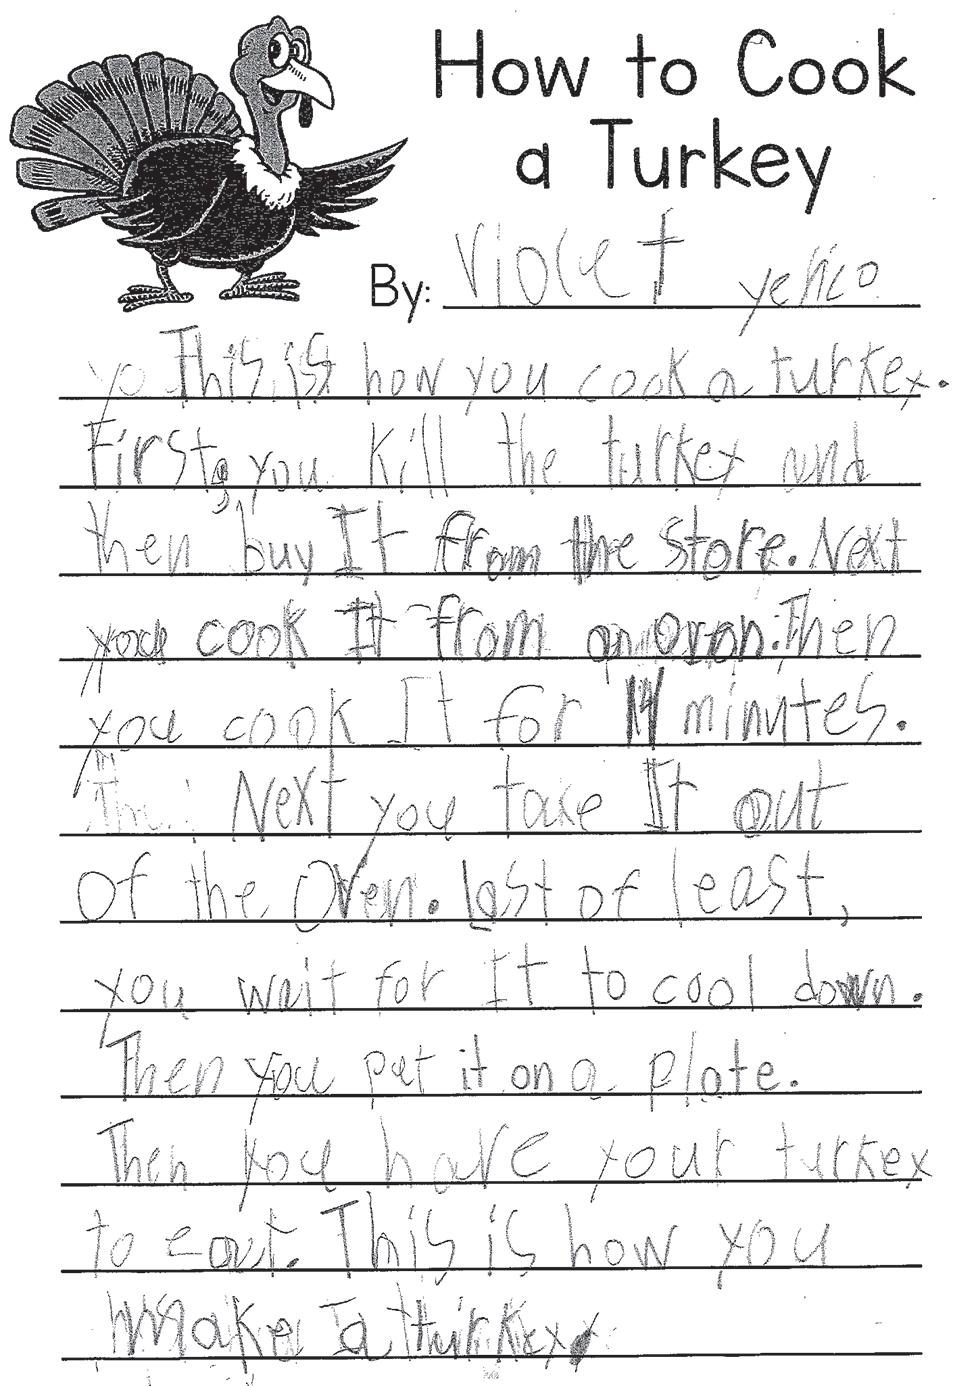 How to Cook
a Turkey
By: Violet Yerico
yo This is how you cook a turkey.
First, you kill the turkey and
then buy It from the store. Next
you cook It from an ovan. Then
you cook It for 14 minutes.
Next you take It out
of the Oven. last of least,
you wait for It to cool down.
Then you put it on a plate.
Then you have your turkey
to eat. This is how you
make a turkey.